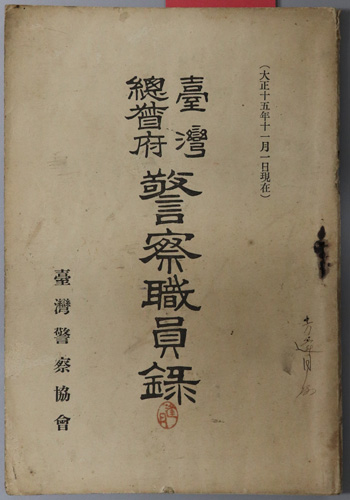 （大正十五年十一月一日現在）
臺灣
總督府
警察職員錄
臺灣警察協會